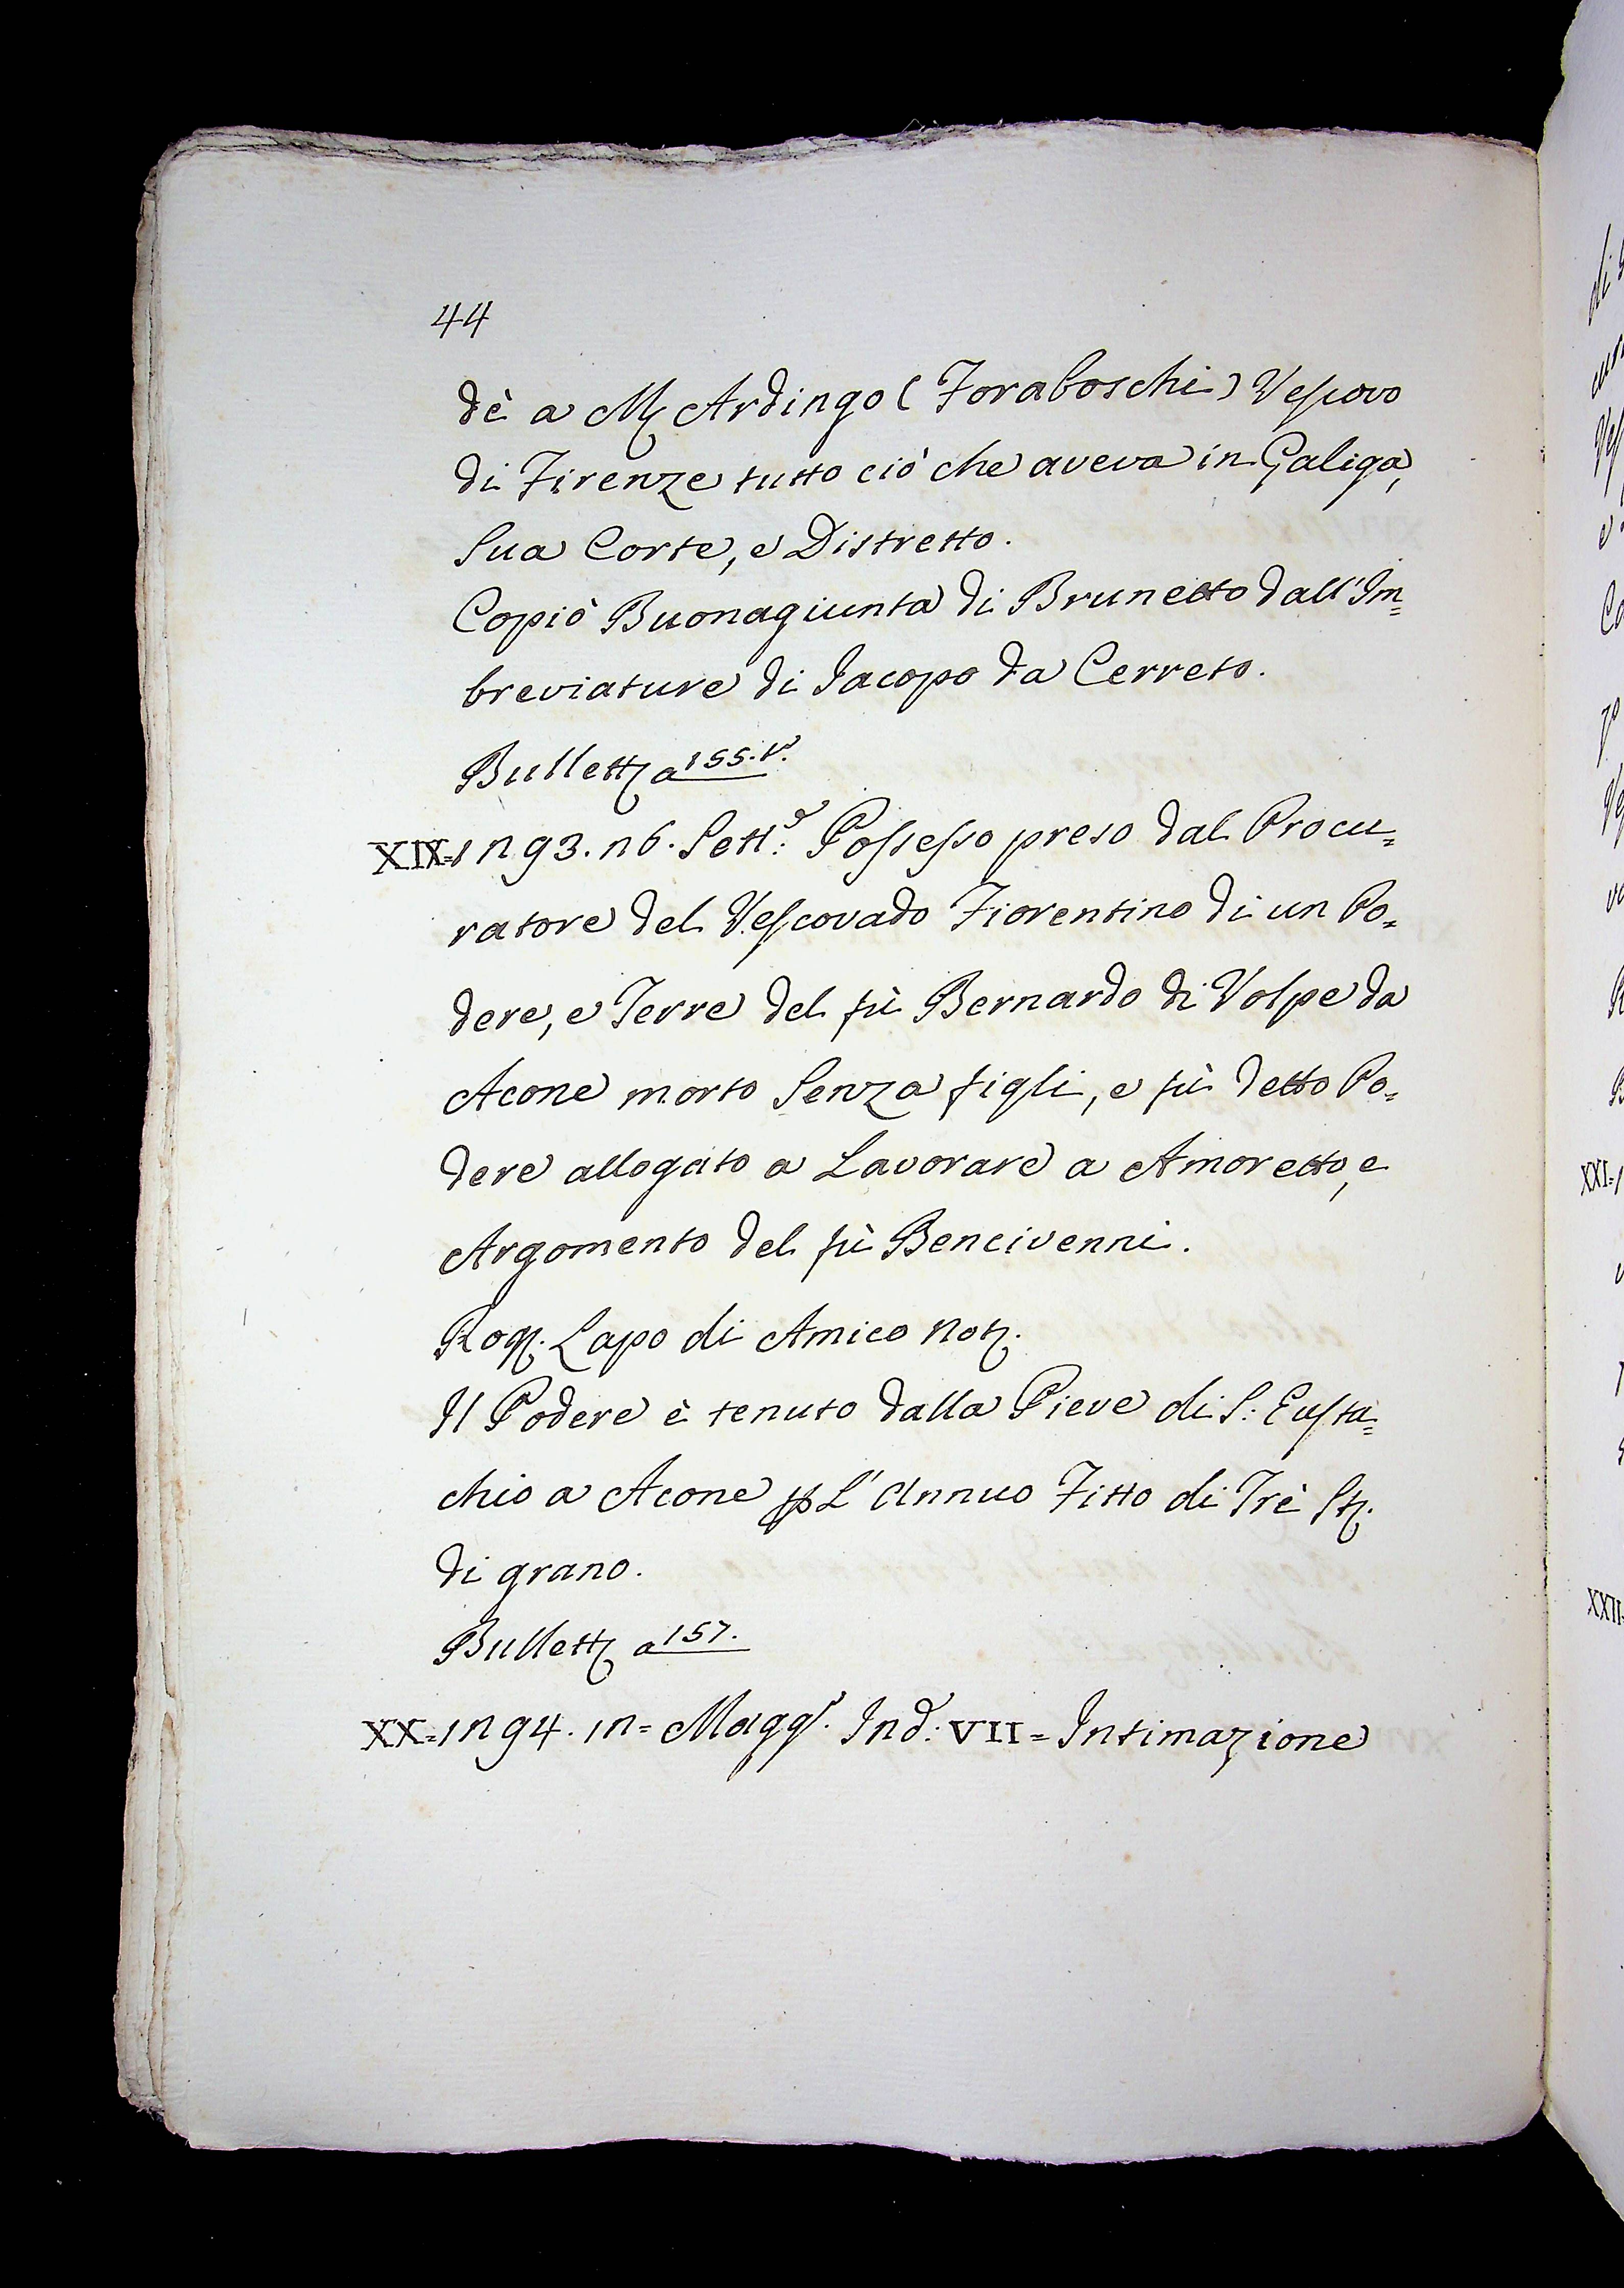 44
dè a M. Ardingo (Foraboschi) Vescovo
di Firenze tutto ciò che aveva in Galiga,
Sua Corte, e Distretto.
Copiò Buonagiunta di Brunetto dall'Im=
breviature di Iacopo da Cerreto.
Bullett. a 155. v.
XIX=1293. 26. Sett.e: Possesso preso dal Procu=
ratore del Vescovado Fiorentino di un Po=
dere, e Terre del fù Bernardo di Volpe da
Acone morto Senza figli, e fù detto Po=
dere allogato a Lavorare a Amoretto, e
Argomento del fù Bencivenni.
Rog. Lapo di Amico Not.
Il Podere è tenuto dalla Pieve di S: Eusta=
chio a Acone p L'Annuo Fitto di Trè St.
di grano.
Bullett. a 157.
XX=1294. 12= Magg. Ind: VII= Intimazione
XXI=1
XXII=